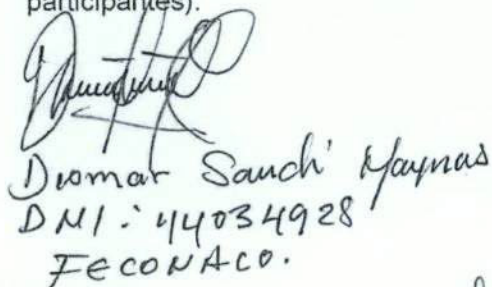 participantes).
Diomar Sandi Maynas
DNI: 44034928
FECONACO.